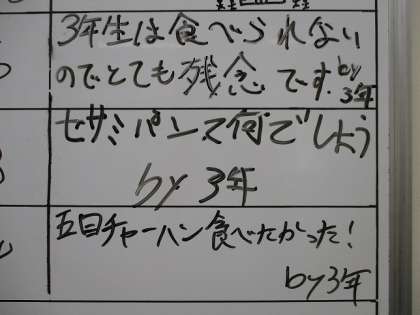 3年生は食べられない
のでとても残念です. by
3年
セサミパンて何でしょう
by 3年
五目チャーハン食べたかった!
by 3年